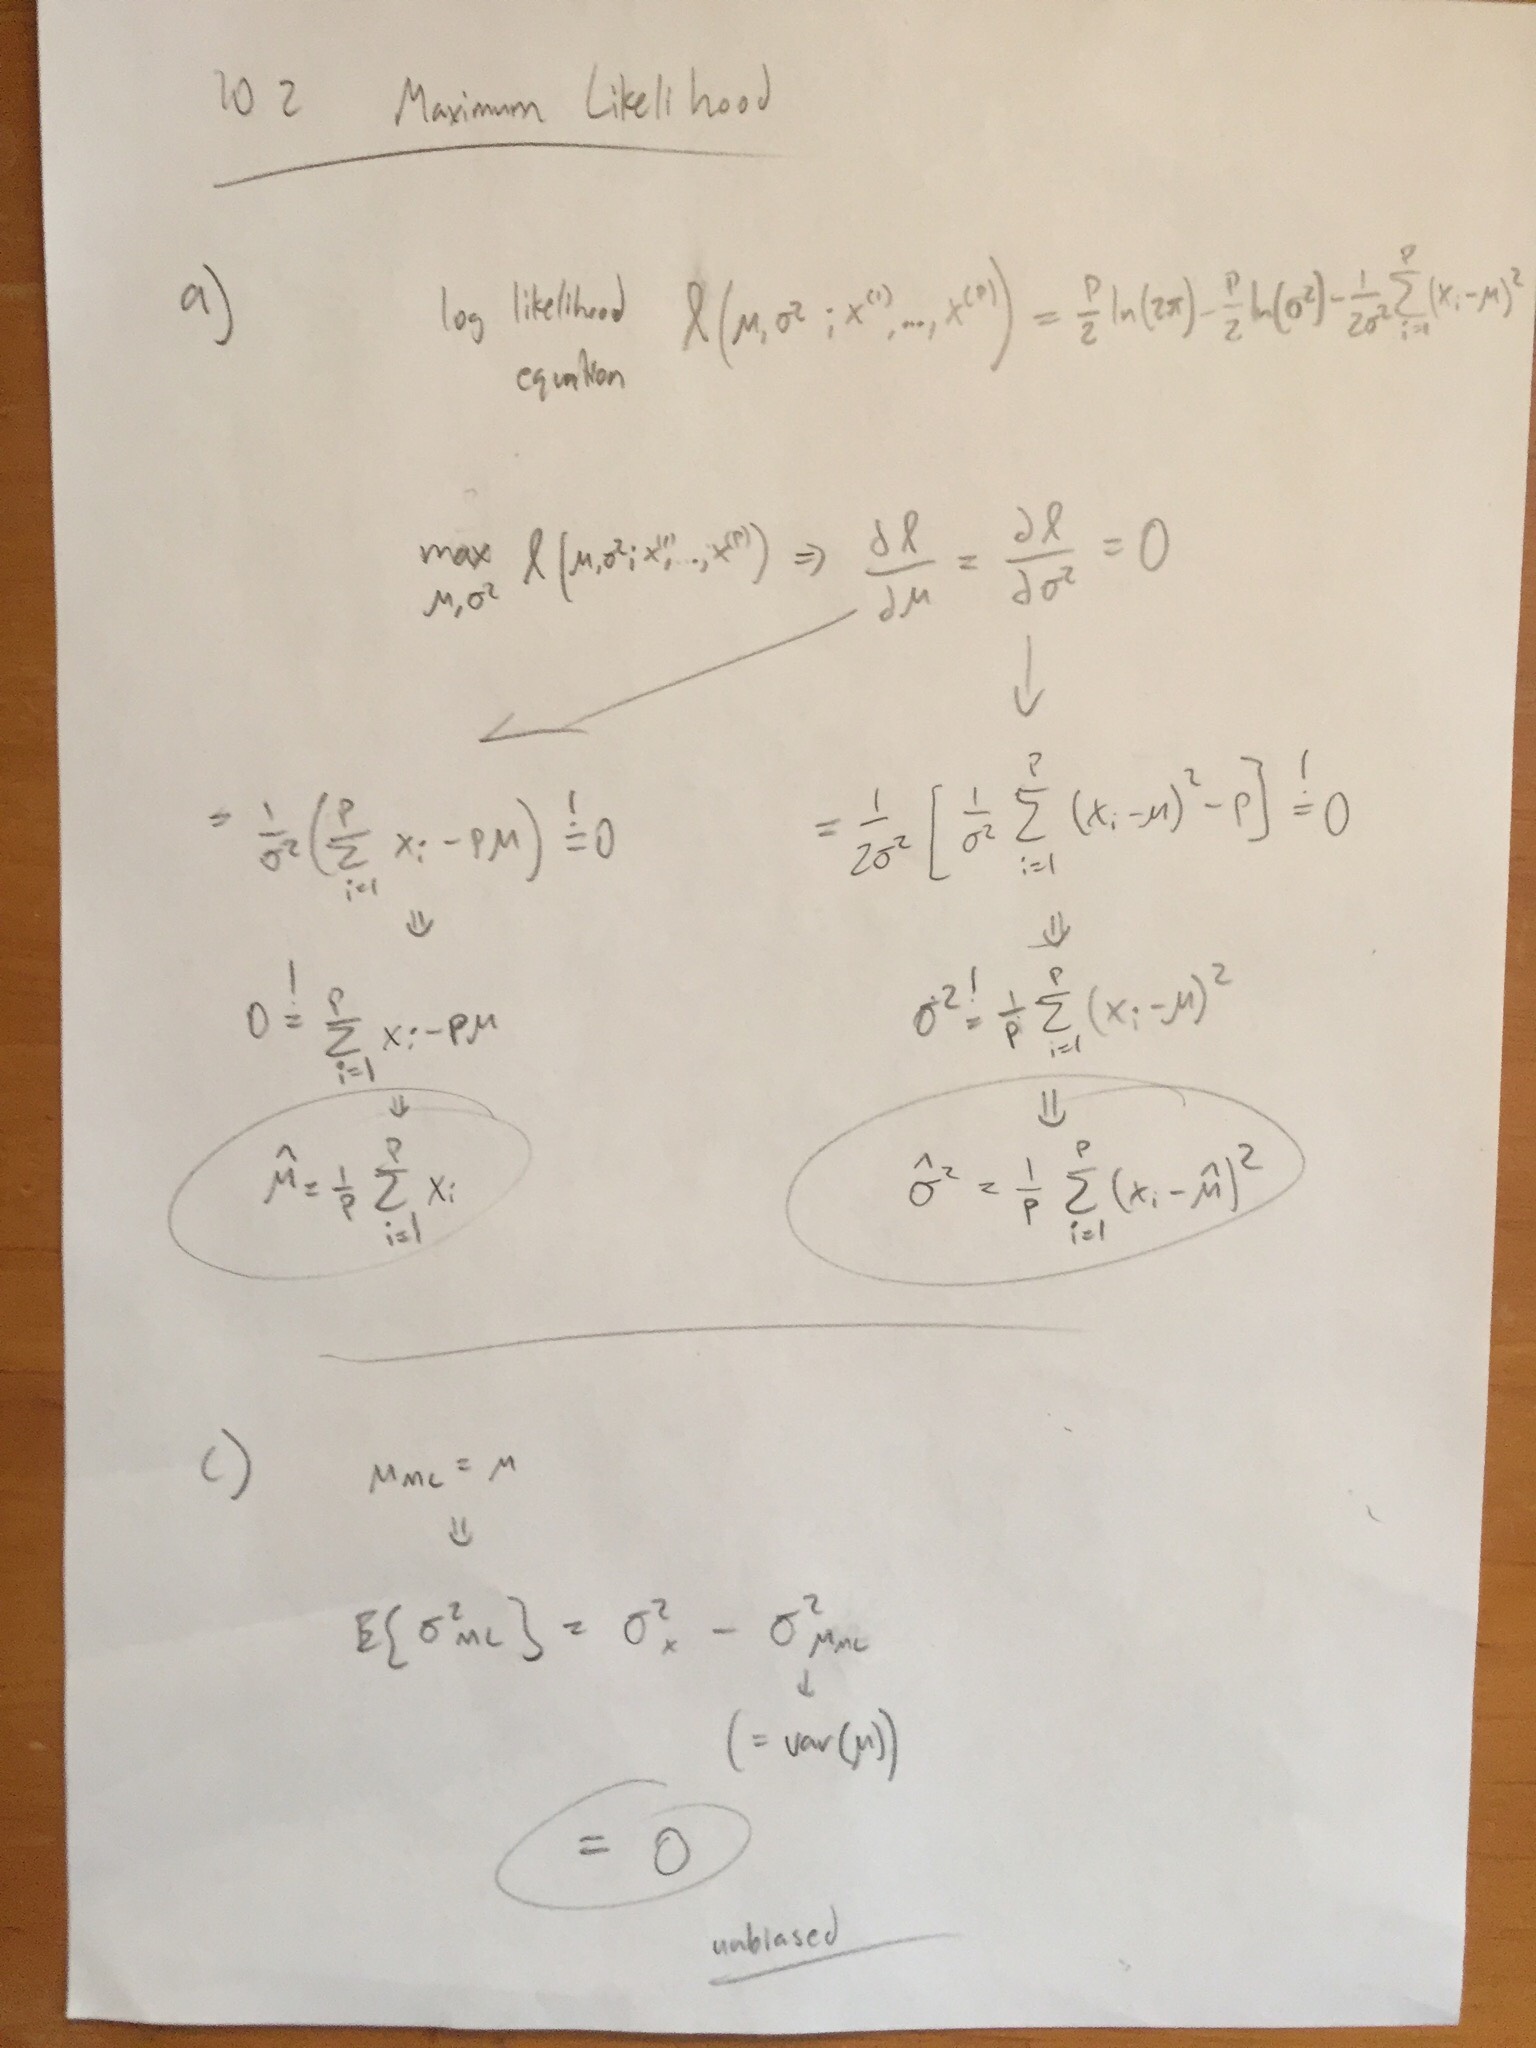 10 2 Maximum Likelihood
a) log likelihood equation ℓ(μ,σ²; x⁽¹⁾,...,x⁽ᵖ⁾) = p/2 ln(2π) - p/2 ln(σ²) - 1/2σ² Σᵢ₌₁ᵖ (xᵢ-μ)²
max μ,σ² ℓ(μ,σ²; x⁽¹⁾,...,x⁽ᵖ⁾) ⇒ ∂ℓ/∂μ = ∂ℓ/∂σ² = 0
= 1/σ² (Σᵢ₌₁ᵖ xᵢ - pμ) =! 0
= 1/2σ² [1/σ² Σᵢ₌₁ᵖ (xᵢ-μ)² - p] =! 0
⇓
⇓
0 =! Σᵢ₌₁ᵖ xᵢ - pμ
σ² =! 1/p Σᵢ₌₁ᵖ (xᵢ-μ)²
⇓
⇓
μ̂ = 1/p Σᵢ₌₁ᵖ xᵢ
σ̂² = 1/p Σᵢ₌₁ᵖ (xᵢ-μ̂)²
c) μ_ML = μ
⇓
E{σ²_ML} = σ²ₓ - σ²_μ_ML
↓
(= var(μ))
= 0
unbiased